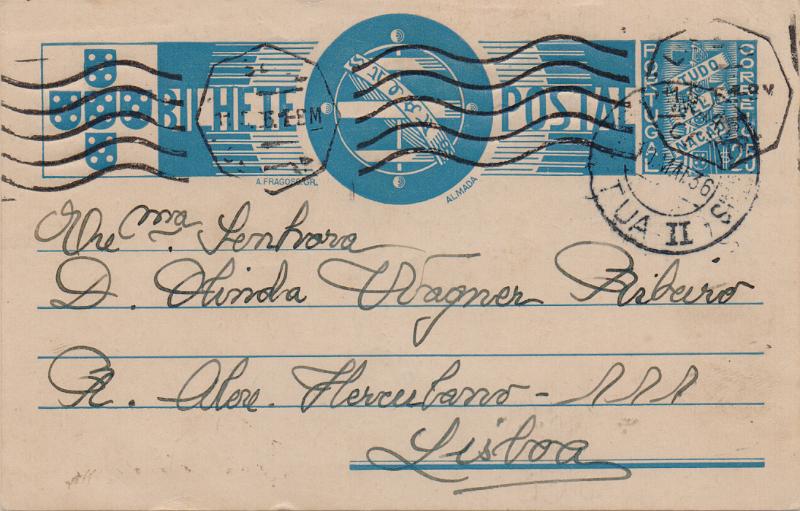 BILHETE POSTAL
PORTUGAL
CORREIO
TUDO
PELA
NAÇÃO
$25
A. FRAGOSO. GR.
ALMADA
MAI. 36
TUA II
Exma. Senhora
D. Olinda Wagner Ribeiro
R. Alex. Herculano - 111
Lisboa